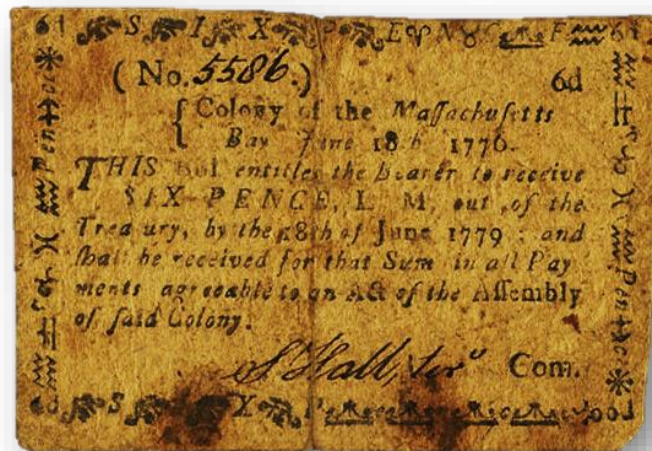 6d S I X P E N C E 6d
(No. 5586.) 6d
Colony of the Maſſachuſetts
Bay June 18th 1776.
THIS Bill entitles the Bearer to receive
SIX PENCE, L M, out of the
Treaſury, by the 18th of June 1779 ; and
ſhall be received for that Sum in all Pay
ments agreeable to an Act of the Aſſembly
of ſaid Colony.
S Hall, Com.
S X